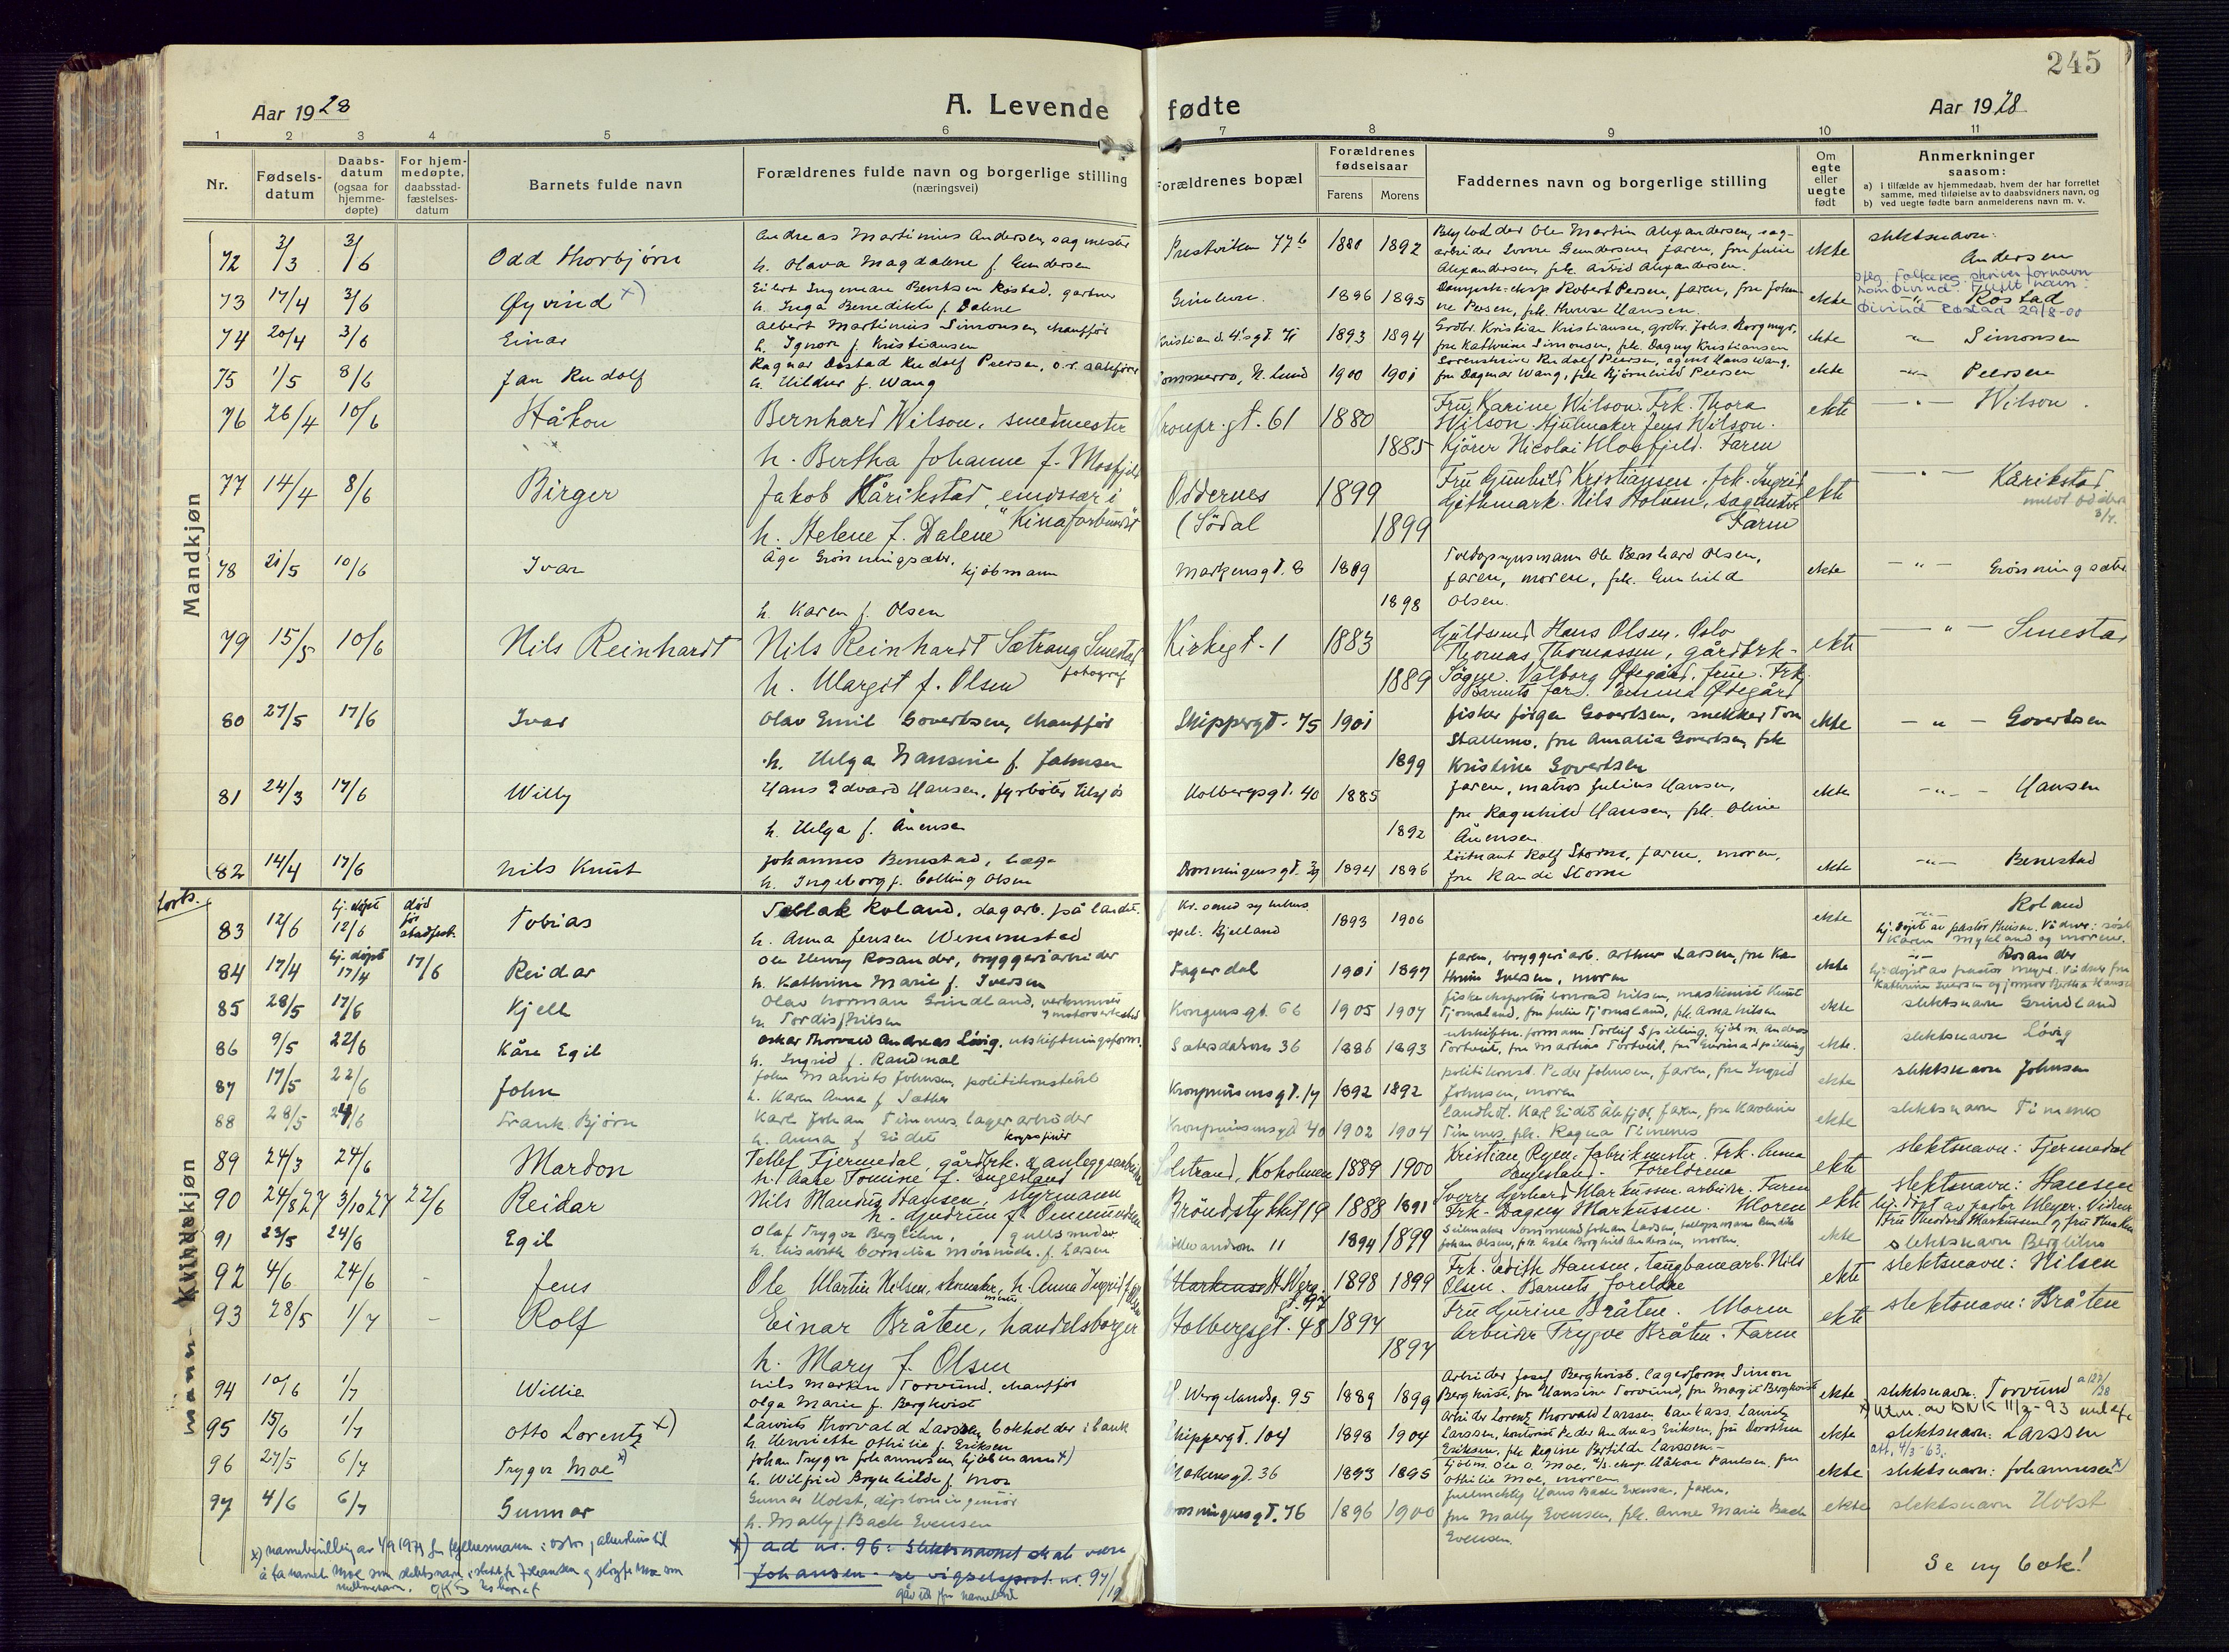 245
Aar 1928
A. Levende fødte
Aar 1928
1 2 3 4 5 6 7 8 9 10 11
Nr.
Fødsels-
datum
Daabs-
datum
(ogsaa for
hjemme-
døpte)
For hjem-
medøpte,
daabsstad-
fæstelses-
datum
Barnets fulde navn
Forældrenes fulde navn og borgerlige stilling
(næringsvei)
Forældrenes bopæl
Forældrenes
fødselsaar
Farens Morens
Faddernes navn og borgerlige stilling
Om
egte
eller
uegte
født
Anmerkninger
saasom:
a) i tilfælde av hjemmedaab, hvem der har forrettet
samme, med tilføielse av to daabsvidners navn, og
b) ved uegte fødte barn anmelderens navn m. v.
Mandkjøn
72 3/3 3/6 Odd Thorbjørn Andreas Martinius Andersen, sagmester
h. Olava Magdalene f. Gundersen
Prestviken 77b 1880 1892
Ole Martin Alexandersen, sag-
arbeider Sverre Gundersen, faren, fru Julie
Alexandersen, frk. Astrid Alexandersen.
ekte slektsnavn:
Andersen
73 17/4 3/6 Øyvind x) Eilert Ingeman Bentsen Røstad, gartner
h. Inga Benedikte f. Dalene
Gimlevn. 1896 1895
Robert Persen, faren, fru Johan-
ne Persen, frk. Hansen.
ekte - " - Røstad
Iflg. Folkereg. skrives fornavn
som Øivind. Fullt navn:
Øivind Røstad 29/8-00
74 20/4 3/6 Einar Albert Martinius Simonsen, chauffør
h. Ignora f. Kristiansen
Kristian d. 4.'sgt. 71 1893 1894
Grdbr. Kristian Kristiansen, grdbr. Johs.
fru Kathrine Simonsen, frk. Dagny Kristiansen
ekte " Simonsen
75 1/5 8/6 Jan Rudolf Ragnar Rudolf Peersen, o.r. sakfører
h. Hildur f. Wang
Sommerro, N. Lund 1900 1901
Sorenskriver Rudolf Peersen, agent Hans Wang,
fru Dagmar Wang, frk Bjørnhild Peersen
ekte - " - Peersen
76 26/4 10/6 Håkon Bernhard Wilson, smedmester
h. Bertha Johanne f. Mosfjeld
Kronpr.gt. 61 1880 1885
Fru Karine Wilson. Frk. Thora
Wilson. Hjulmaker Jens Wilson.
Kjører Nicolai Mosfjeld. Faren
ekte - " - Wilson.
77 14/4 8/6 Birger Jakob Kårikstad, emissær i
"Kinaforbundet"
h. Helene f. Dalene
Oddernes
(Sødal
1899 1899
Fru Gunhild Kristiansen. Frk. Ingrid
Gjethmark. Nils Holmen, sagmester
Faren
ekte - " - Kårikstad
3/7.
78 21/5 10/6 Ivar Åge Grønningsæter,
kjøbmann
h. Karen f. Olsen
Markensgt. 8 1889 1898
Toldopsynsmann Ole Bernhard Olsen,
faren, moren, frk. Gunhild
Olsen.
ekte - " - Grønningsæter
79 15/5 10/6 Nils Reinhardt Nils Reinhardt Sætrang Smestad
fotograf
h. Margit f. Olsen
Kirkegt. 1 1883 1889
Gullsmed Hans Olsen, Oslo
Thomas Thomassen, gårdbrk-
Søgne. Valborg Ødegård. Frue. Frk.
Barnets far. Emma Ødegård
ekte - " - Smestad
80 27/5 17/6 Ivar Olav Emil Govertsen, chauffør
h. Helga Hansine f. Johnsen
Skippergt. 75 1901 1899
fisker Jørgen Govertsen, snekker Tom
Stallemo, fru Amalia Govertsen, frk
Kristine Govertsen
ekte - " - Govertsen
81 24/3 17/6 Willy Hans Edvard Hansen, fyrbøter tilsjøs
h. Helga f. Ånensen
Holbergsgt. 40 1885 1892
faren, matros Julius Hansen,
fru Ragnhild Hansen, frk. Oline
Ånensen
ekte - " - Hansen
82 14/4 17/6 Nils Knut Johannes Benestad, læge
h. Ingeborg f. Colling Olsen
Dronningensgt. 39 1894 1896
Løitnant Rolf Storm, faren, moren,
fru Randi Storm
ekte - " - Benestad
forts.
mann- Kvindekjøn
83 12/6 hj. døpt
12/6 død
før
stadfest. Tobias Tellak Roland, dagarb. på landet.
h. Anna Jensen Wemmestad
Kr.sand sykehus.
bopel: Bjelland
1893 1906 ekte - " - Roland
hj. døpt av pastor Vidner:
Karen Mykland og moren.
84 17/4 hj. døpt
17/4 17/6 Reidar Ole Henry Rosander, bryggeriarbeider
h. Kathrine Marie f. Iversen
Fagerdal 1901 1897
faren, bryggeriarb. Arthur Larsen, fru Ka-
thrine Iversen, moren
ekte - " - Rosander
hj. døpt av pastor Meyer. Vidner fru
Kathrine Iversen og jormor Bertha Hansen
85 28/5 17/6 Kjell Olav Norman Grindland,
h. Tordis f. Nilsen
Kongensgt. 66 1905 1907
fiskeeksportør Conrad Nilsen, maskinist Knut
Tjomsland, fru Julie Tjomsland, frk. Anna Nilsen
ekte slektsnavn Grindland
86 9/5 22/6 Kåre Egil Oskar Thorvald Andreas Løvig, utskiftningsform.
h. Ingrid f. Randnal
Sætersdalsvn 36 1886 1893
utskiftn. formann Torleif Spilling, kjøbm. Anders
Tortveit, fru Martine Tortveit, fru Spilling
ekte. slektsnavn Løvig
87 17/5 22/6 John John Mauritz Johnsen, politikonstabel
h. Karen Anna f. Sæther
Kronprinsensgt. 14 1892 1892
politikonst. Peder Johnsen, faren, fru Ingrid
Johnsen, moren
ekte slektsnavn Johnsen
88 28/5 24/6 Frank Bjørn Karl Johan Timenes, lagerarbeider
h. Anna f. Eidet
Kronprinsensgt 40 1902 1904
Karl Eidet Ålefjær, faren, fru Karoline
Timenes, frk. Ragna Timenes
ekte slektsnavn Timenes
89 24/3 24/6 Mardon Tellef Fjermedal, gårdbrk. & anleggsarbeider
h. Aase Tomine f. Engesland
Solstrand, Kokolmen 1889 1900
Kristian Ryen, fabrikmester. Frk. Anna
Engesland. Foreldrene
ekte slektsnavn: Fjermedal
90 24/8 27 3/10 27 22/6 Reidar Nils Mandius Hansen, styrmann
h. Gudrun f. Ommundsen
Brøndstykket 19 1888 1891
Sverre Gerhard Markussen, arbeider. Faren
Frk. Dagny Markussen. Moren
ekte slektsnavn: Hansen
hj. døpt av pastor Meyer. Vidner
Fru Theodora Markussen og fru Thea
91 23/5 24/6 Egil Olaf Trygve Berglihn, gullsmedsv.
h. Elisabeth Cornelia f. Larsen
11 1894 1899
Seilmaker Johan Larsen,
Johan Olsen, frk. Asta Borghild Andersen, moren.
ekte slektsnavn Berglihn
92 4/6 24/6 - Jens Ole Martin Nilsen, skomaker, h. Anna Ingrid f. Olsen
Markens H.Werg. g. 97 1898 1899
Frk. Edith Hansen, taugbanearb. Nils
Olsen. Barnets foreldre
ekte slektsnavn: Nilsen
93 28/5 1/7 - Rolf Einar Bråten, handelsborger
h. Mary f. Olsen
Holbergsgt. 48 1894 1897
Fru Gurine Bråten. Moren
Arbeider Trygve Bråten. Faren
ekte slektsnavn: Bråten
94 10/6 1/7 Willie Nils Martin Torvund, chauffør
Olga Marie f. Berghvist
H. Wergelandsg. 95 1889 1899
Arbeider Josef Berghvist, lagerform Simon
Berghvist, fru Hansine Torvund, fru Margit Berghvist
ekte slektsnavn: Torvund
95 15/6 1/7 Otto Lorentz x) Laurits Thorvald Larssen, bokholder i bank
h. Henriette Othilie f. Eriksen
Skippergt. 104 1898 1904
Arbeider Lorentz Thorvald Larssen, bankass. Laurits
Larssen, kontorist Peder Andreas Eriksen, fru Dorothea
Eriksen, frk Regine Bertilde Larssen.-
ekte slektsnavn: Larssen
96 27/5 6/7 Trygve Moe x) Johan Trygve Johannesen, kjøbmann x)
h. Wilfried Brynhilde f. Moe
Markensgt. 36 1893 1895
Kjøbm. Ole O. Moe, Håkon Paulsen, fru
Othilie Moe, moren
ekte att. 4/3-63.
slektsnavn: Johannesen x)
97 4/6 6/7 Gunnar Gunnar Holst, diplomingeniør
h. Mally f. Bach Evensen
Dronningensgt. 76 1896 1900
fullmektig Hans Bach Evensen, faren,
fru Mally Evensen, frk. Anne Marie Bach
Evensen.
ekte slektsnavn Holst
x) navnebevilling av 4/9 1974 fra fylkesmannen i Oslo og Akershus til
å ta navnet Moe som slektsnavn i stedet for Johansen og sløyfe Moe som
mellemnavn.
x) ad nr. 96: Slektsnavnet skal være
Johansen - se vigselsprot. nr. 97/19
Se ny bok!